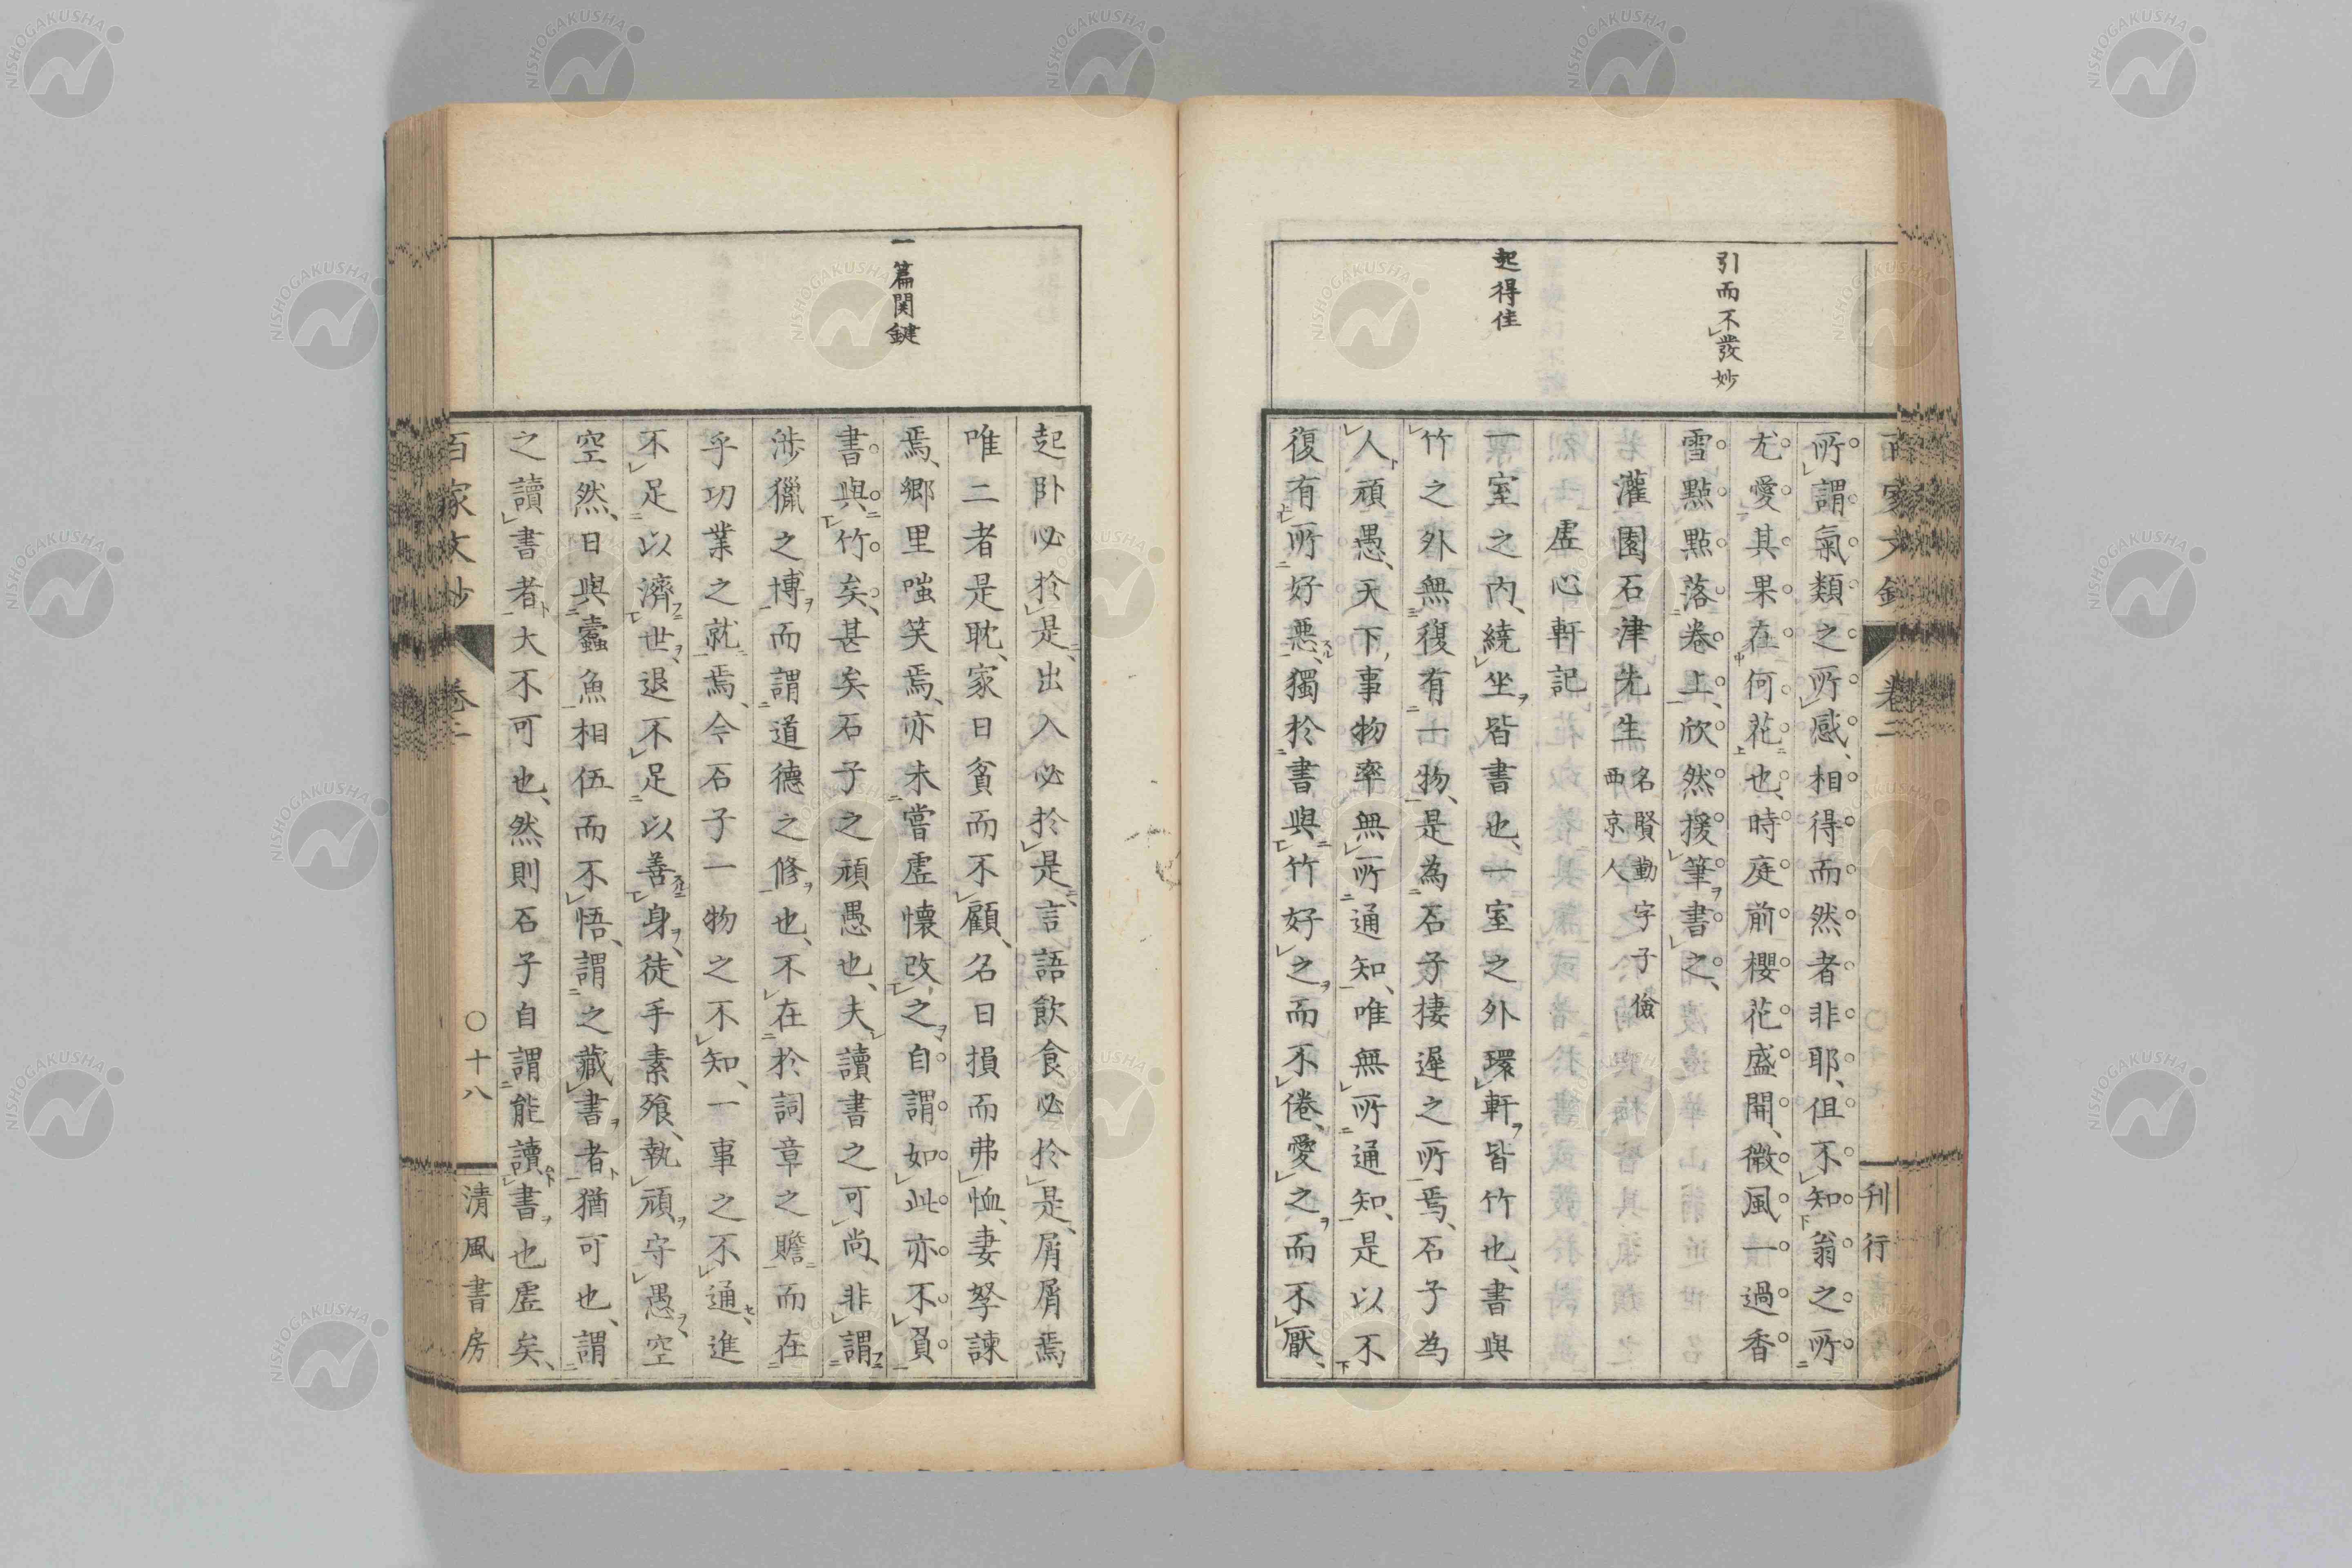 引而不發妙
起得佳
所謂氣類之所感、相得而然者非耶、但不知翁之所
尤愛其果在何花也、時庭前櫻花盛開、微風一過香
雪點點落卷上、欣然援筆書之、
灌園石津先生 名賢勤字子儉 西京人
虛心軒記
一室之內、繞坐皆書也、一室之外環軒皆竹也、書與
竹之外無復有一物、是為石子棲遲之所焉、石子為
人頑愚、天下事物率無所通知、唯無所通知、是以不
復有所好惡、獨於書與竹好之而不倦、愛之而不厭、
刊行
一篇関鍵
起臥必於是、出入必於是、言語飲食必於是、屑屑焉
唯二者是耽、家日貧而不顧、名日損而弗恤、妻孥諫
焉、鄉里嗤笑焉、亦未嘗虛懷改之、自謂如此亦不負
書與竹矣、甚矣石子之頑愚也、夫讀書之可尚、非謂
涉獵之博而謂道德之修也、不在於詞章之贍而在
乎功業之就焉、今石子一物之不知、一事之不通、進
不足以濟世、退不足以善身、徒手素飧、執頑守愚、空
空然、日與蠹魚相伍而不悟、謂之藏書者猶可也、謂
之讀書者大不可也、然則石子自謂能讀書也虛矣、
百家文鈔 卷二 〇十八 清風書房